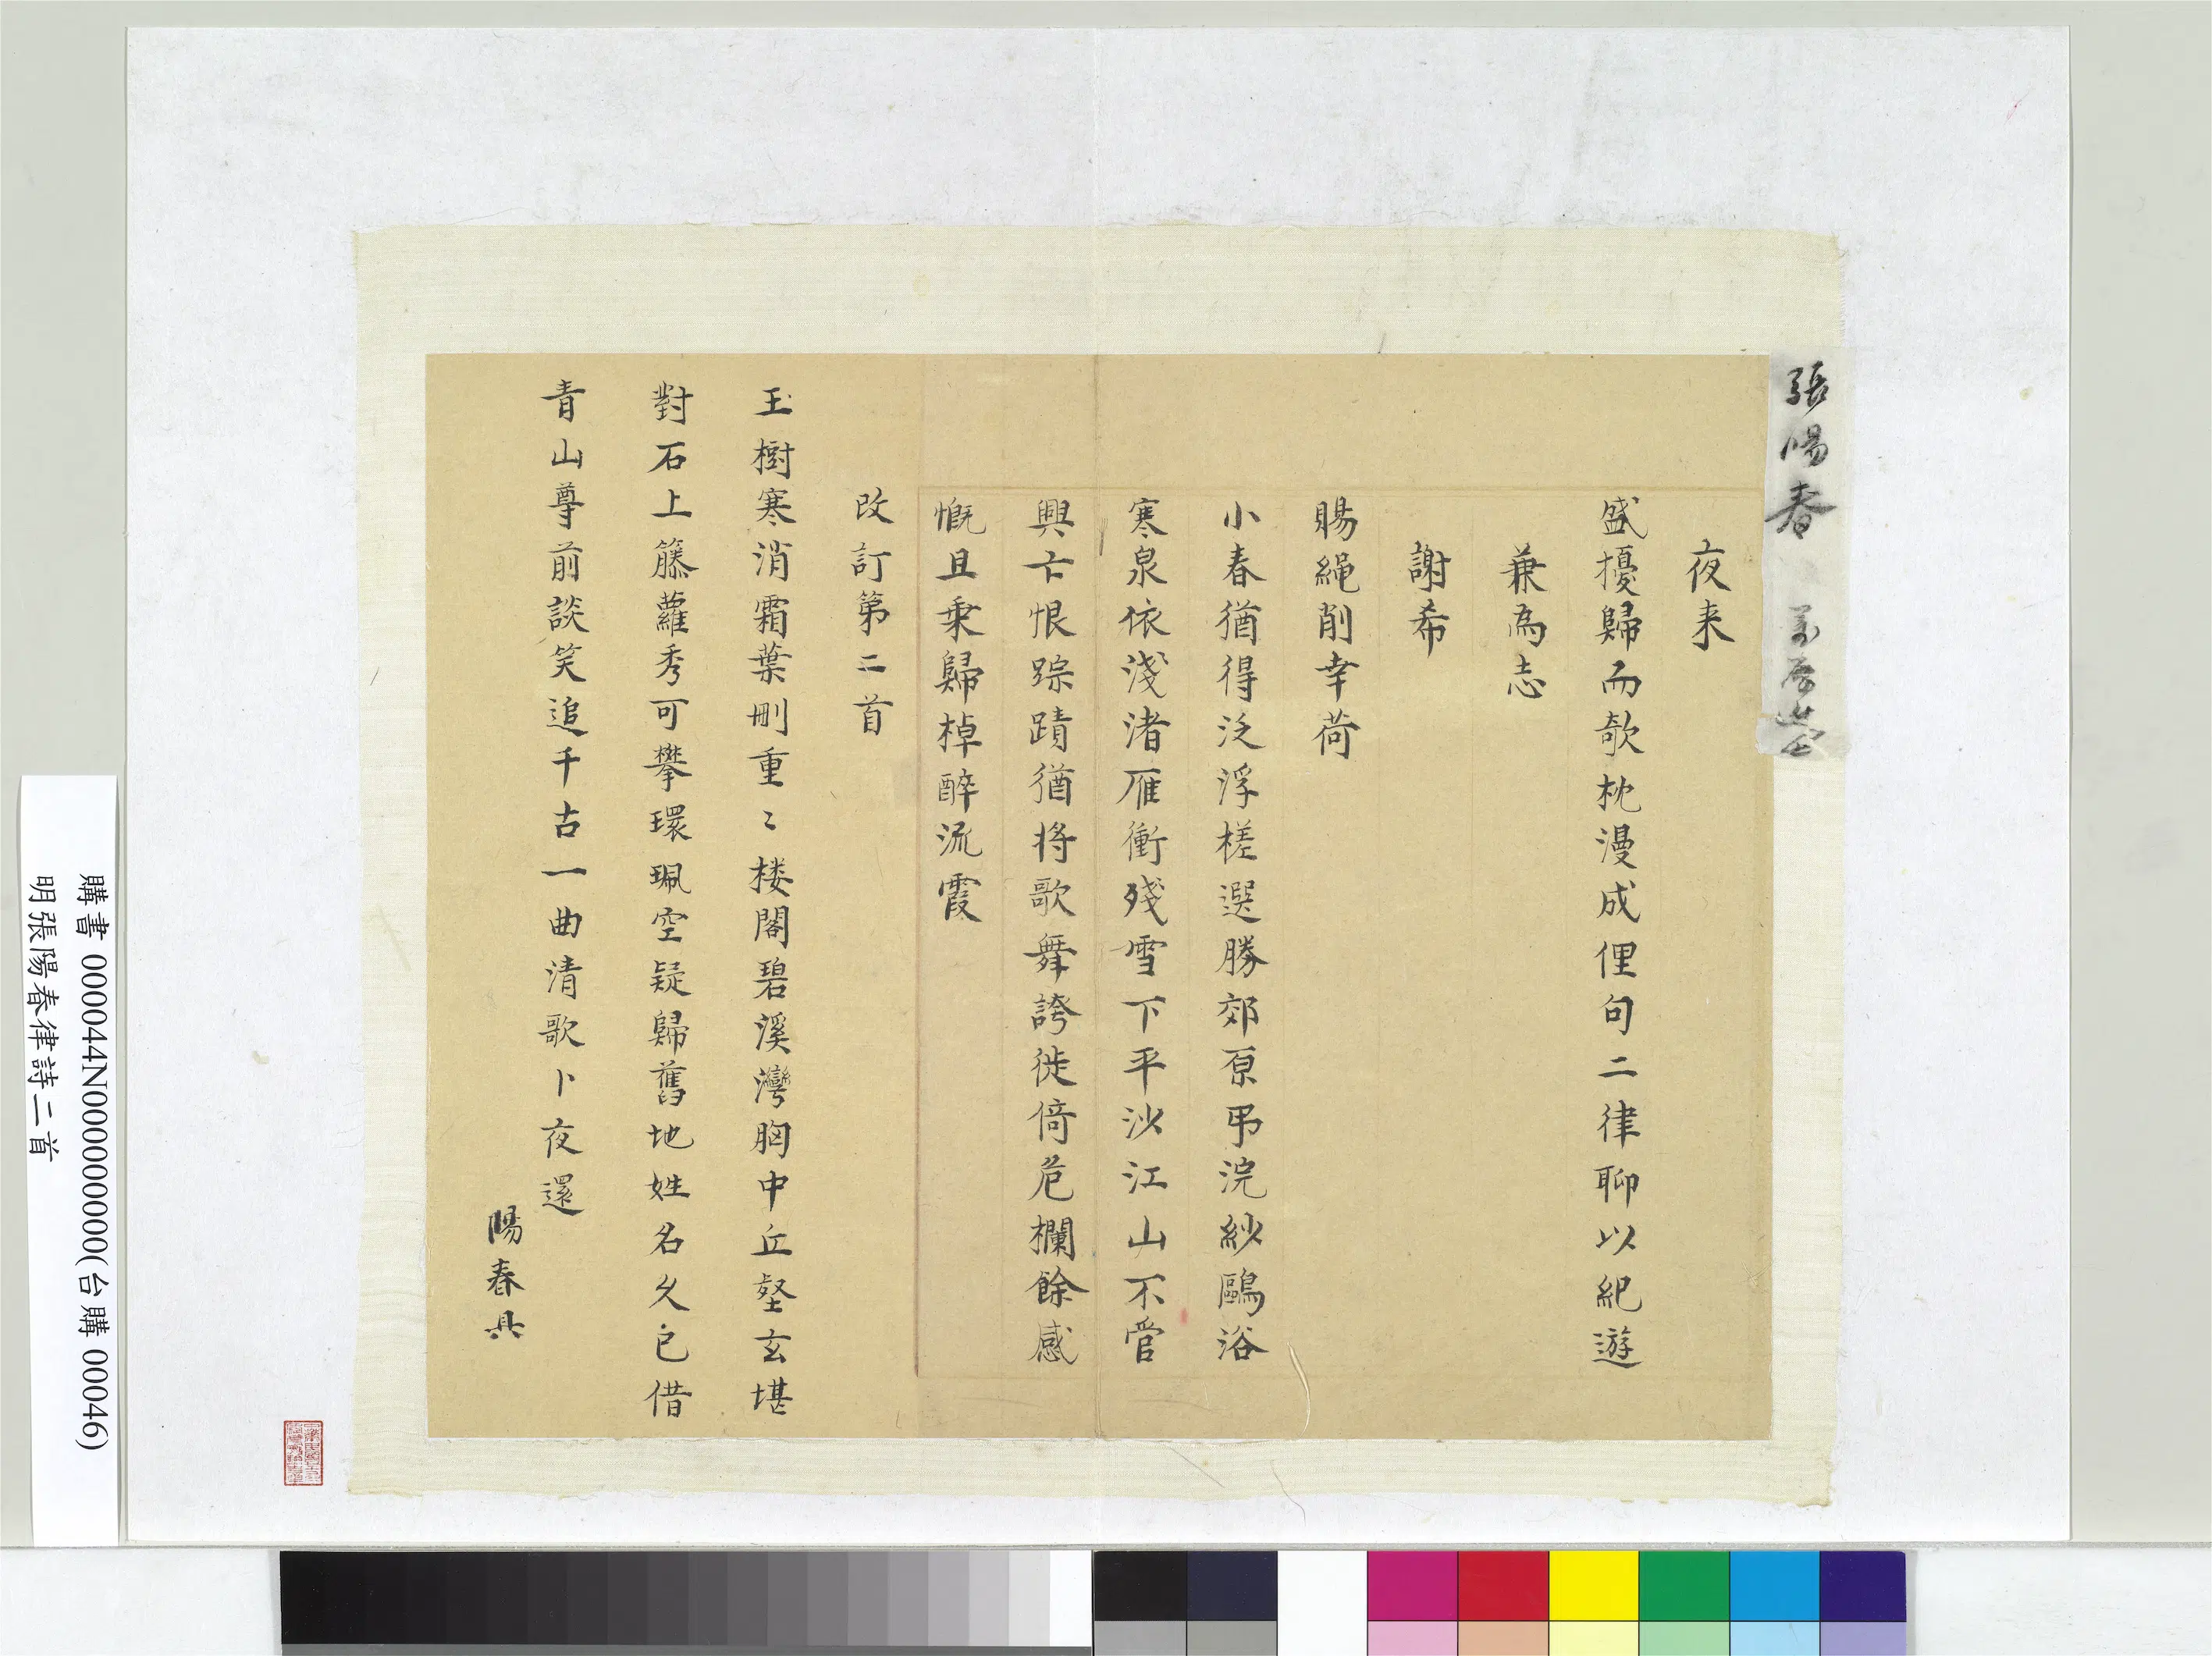 張陽春
夜来
盛擾歸而欹枕漫成俚句二律聊以紀遊
兼為志
謝希
賜繩削幸荷
小春猶得泛浮槎選勝郊原弔浣紗鷗浴
寒泉依淺渚雁衝殘雪下平沙江山不管
興亡恨踪蹟猶将歌舞誇徙倚危欄餘感
慨且乗歸棹醉流霞
改訂第二首
玉樹寒消霜葉刪重〻楼閣碧溪灣胸中丘壑玄堪
對石上籐蘿秀可攀環珮空疑歸舊地姓名久已借
青山尊前談笑追千古一曲清歌卜夜還
陽春具
購書 000044N000000000(台購 00046)
明張陽春律詩二首